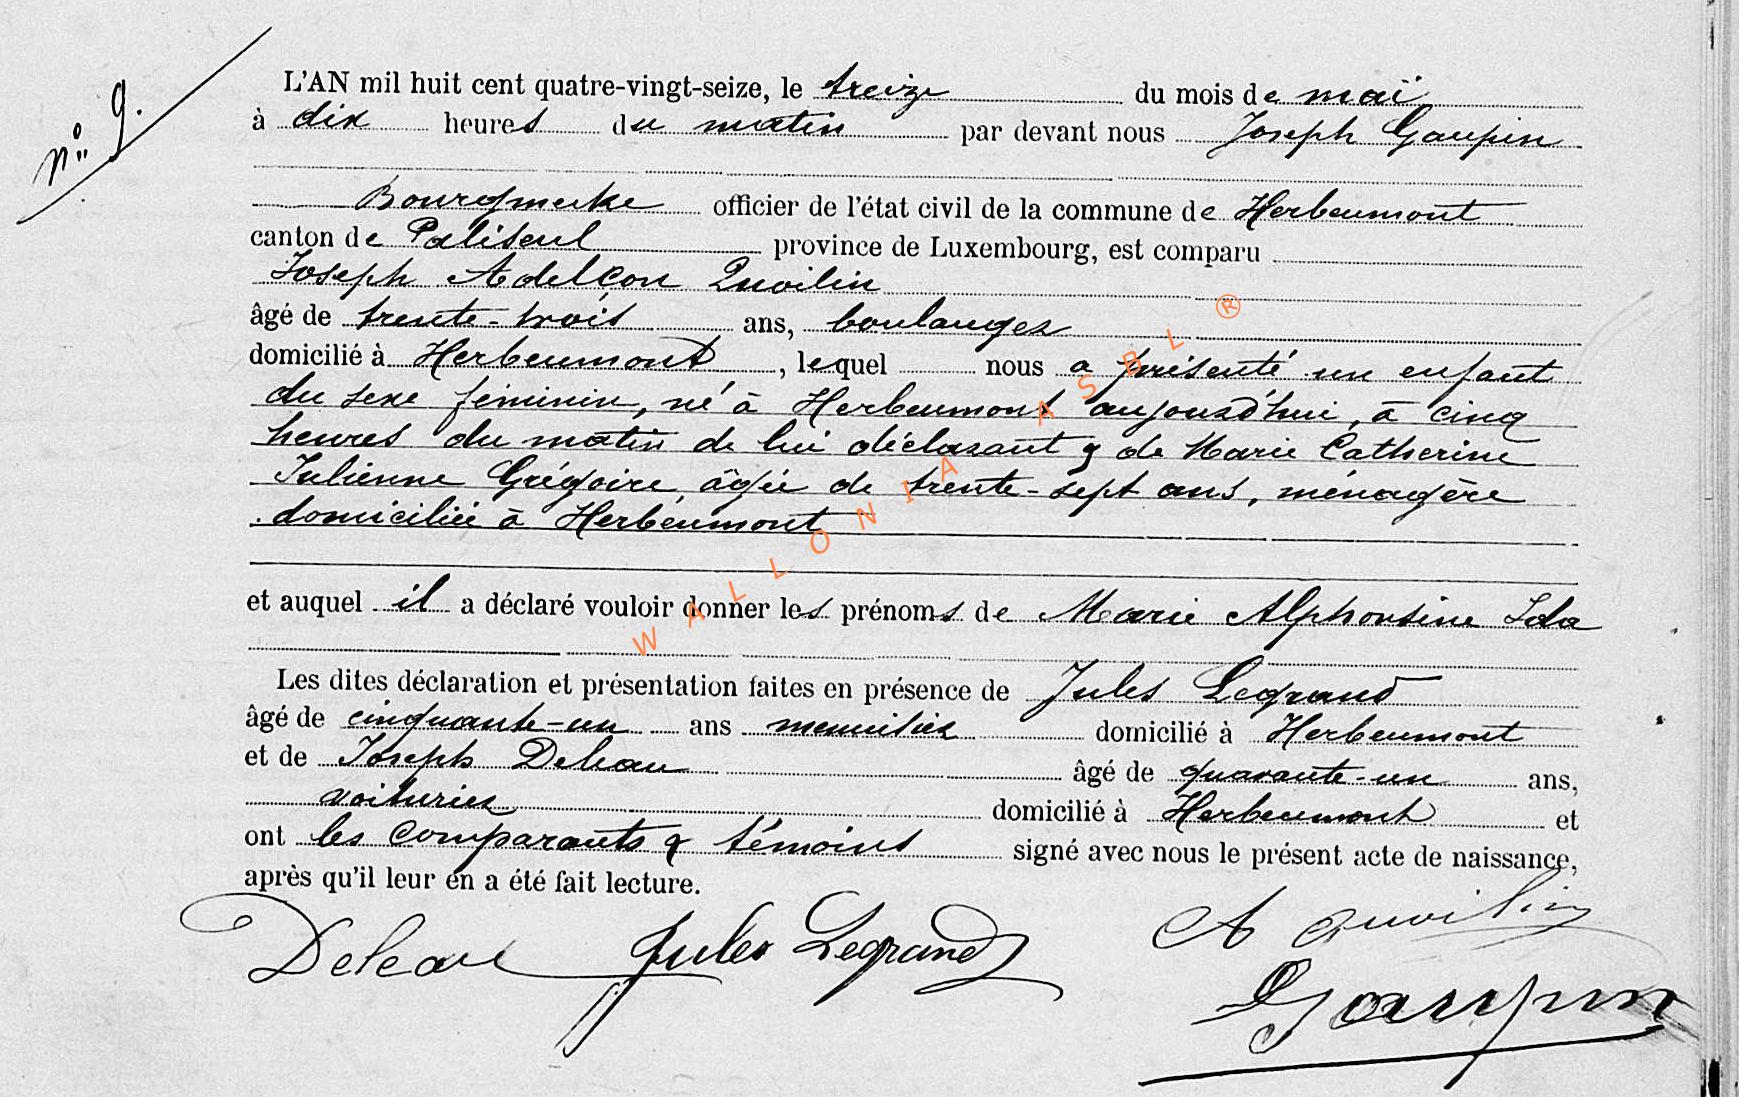 n° 9.
L'AN mil huit cent quatre-vingt-seize, le treize du mois de mai
à dix heures du matin par devant nous Joseph Gaupin
Bourgmestre officier de l'état civil de la commune de Herbeumont
canton de Paliseul province de Luxembourg, est comparu
Joseph Adelçon Quoilin
âgé de trente-trois ans, boulanger
domicilié à Herbeumont, lequel nous a présenté un enfant
du sexe féminin, né à Herbeumont aujourd'hui, à cinq
heures du matin de lui déclarant & de Marie Catherine
Julienne Grégoire, âgée de trente-sept ans, ménagère
domiciliée à Herbeumont
et auquel il a déclaré vouloir donner les prénoms de Marie Alphonsine Ida
Les dites déclaration et présentation faites en présence de Jules Legrand
âgé de cinquante-un ans menuisier domicilié à Herbeumont
et de Joseph Deleau âgé de quarante-un ans,
voiturier domicilié à Herbeumont et
ont les comparants & témoins signé avec nous le présent acte de naissance,
après qu'il leur en a été fait lecture.
Deleau Jules Legrand A Quoilin
Gaupin
WALLONIA ASBL ®